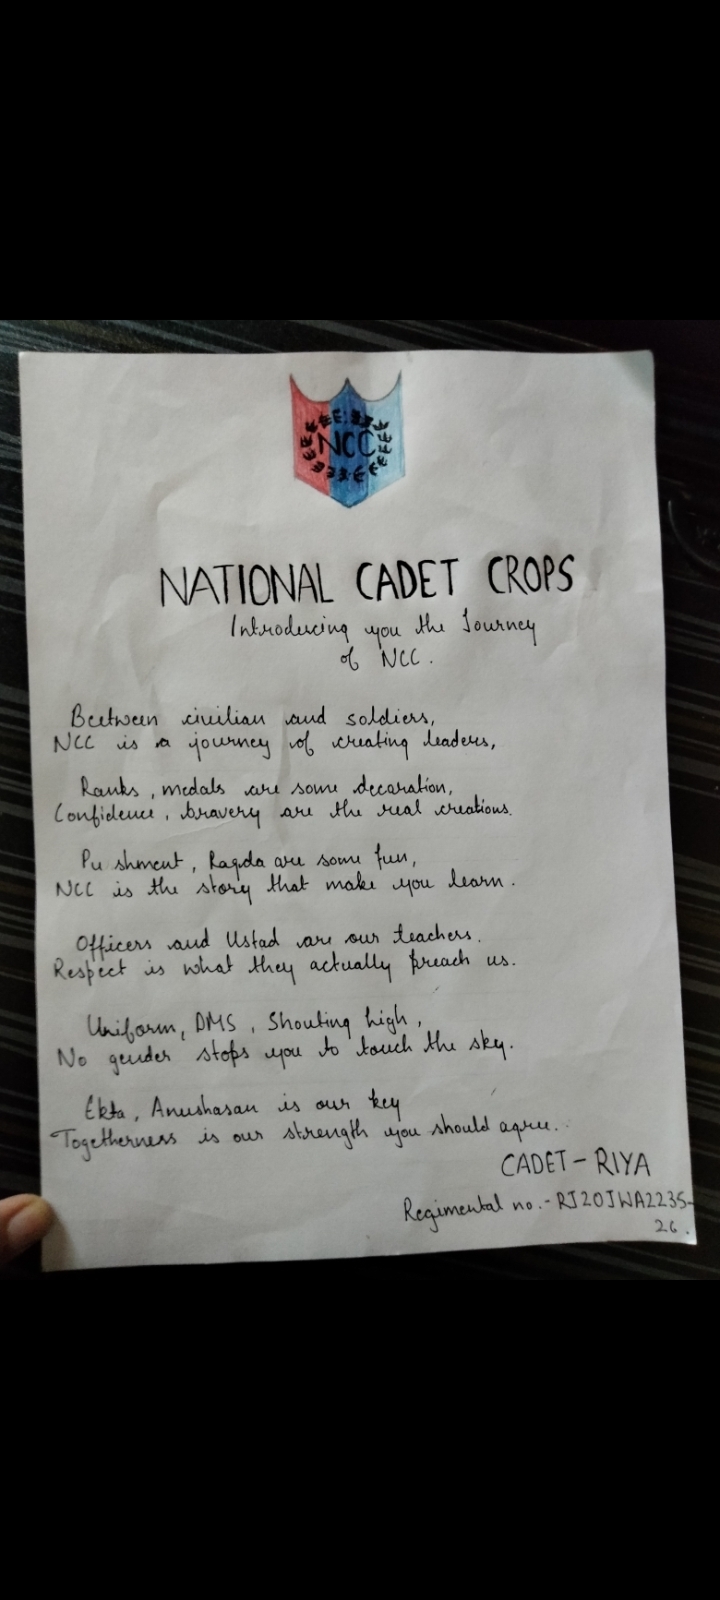 NCC
NATIONAL CADET CROPS
Introducing you the Journey
of NCC.
Beetween civilian and soldiers,
NCC is a journey of creating leaders,
Ranks, medals are some decoration,
Confidence, bravery are the real creations.
Pu shment, Ragda are some fun,
NCC is the story that make you learn.
Officers and Ustad are our teachers.
Respect is what they actually preach us.
Uniform, DMS, Shouting high,
No gender stops you to touch the sky.
Ekta, Anushasan is our key
Togetherness is our strength you should agree..
CADET-RIYA
Regimental no.- RJ20JWA2235-
26.